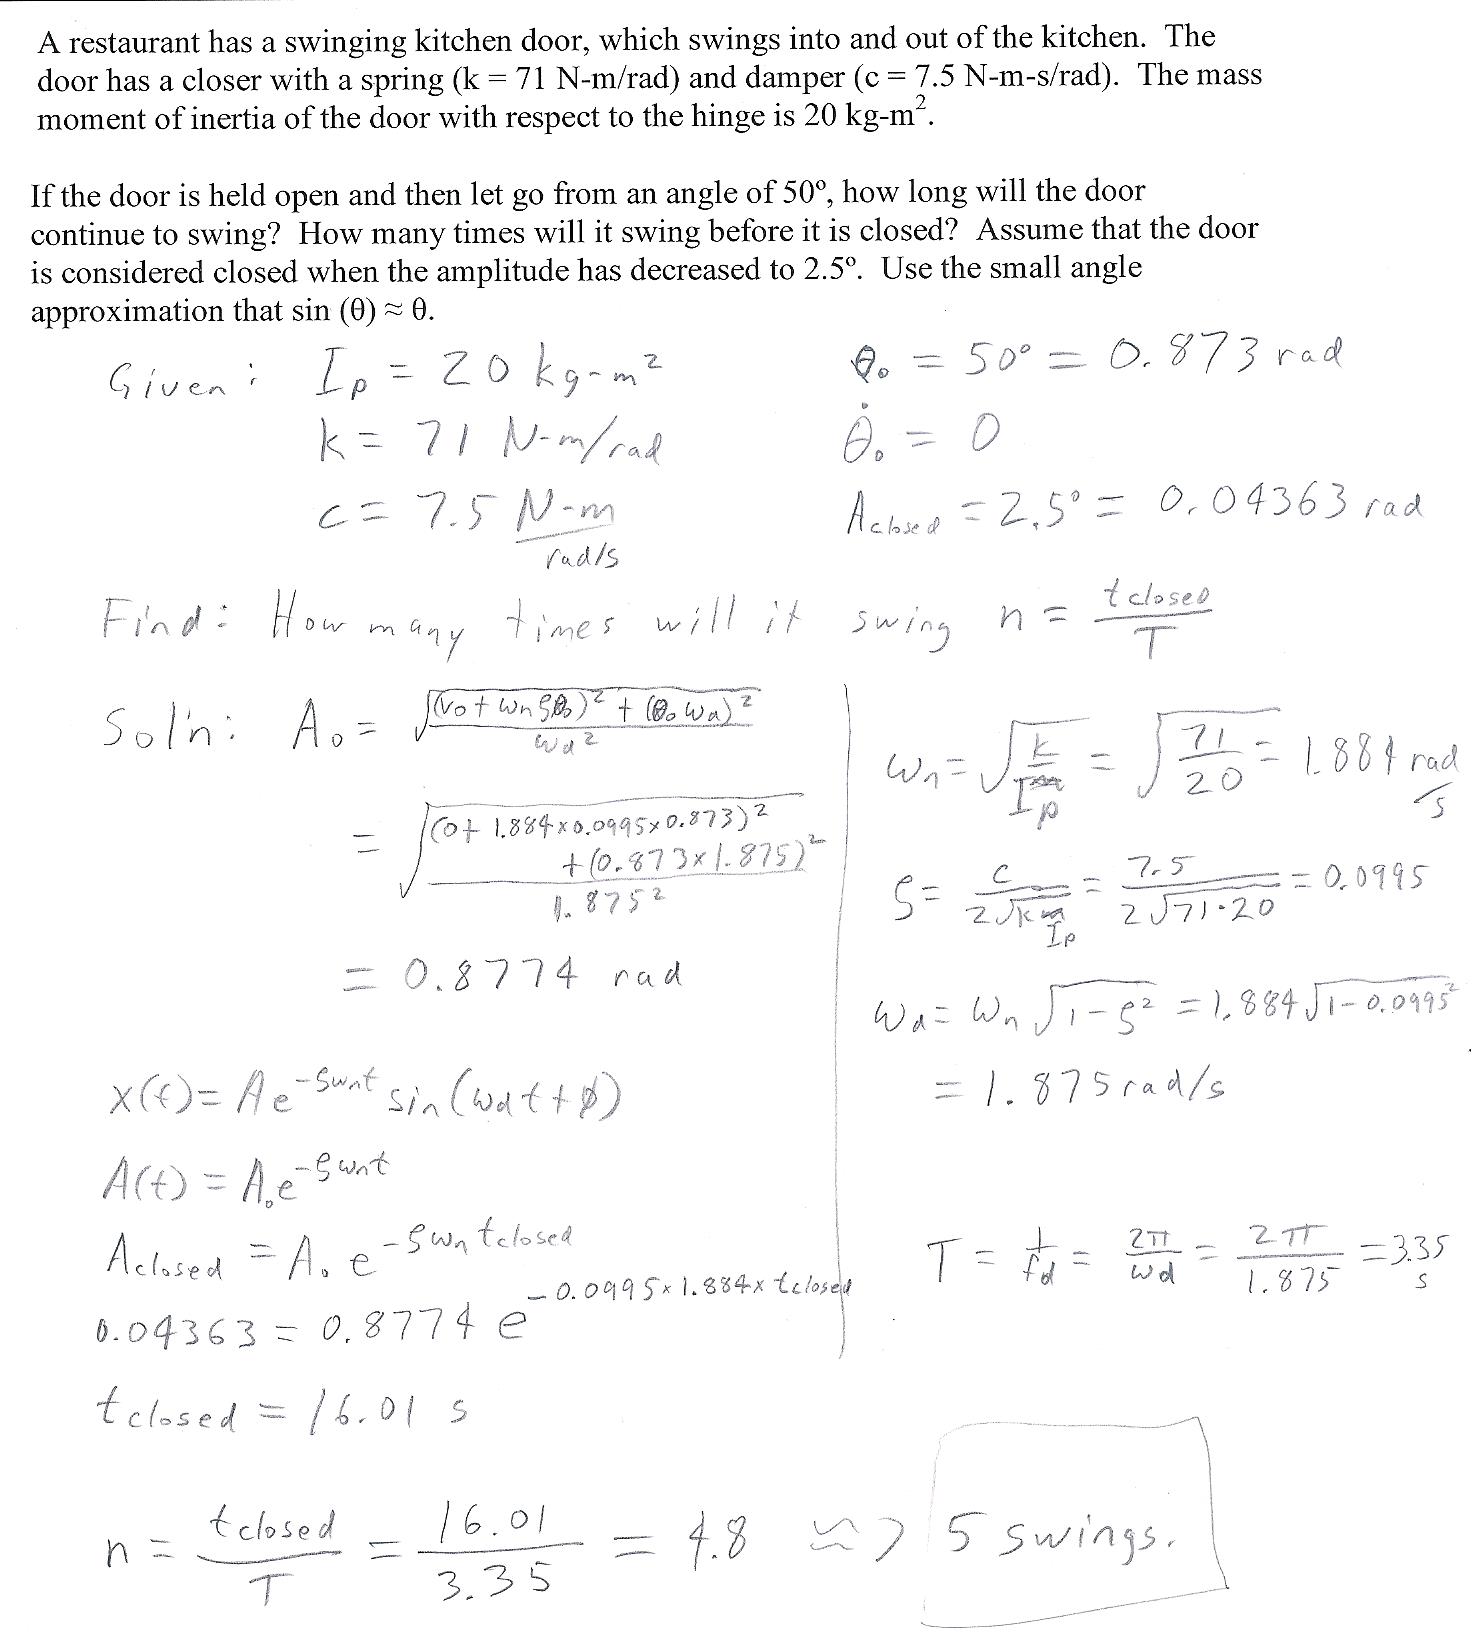 A restaurant has a swinging kitchen door, which swings into and out of the kitchen. The
door has a closer with a spring (k = 71 N-m/rad) and damper (c = 7.5 N-m-s/rad). The mass
moment of inertia of the door with respect to the hinge is 20 kg-m².
If the door is held open and then let go from an angle of 50º, how long will the door
continue to swing? How many times will it swing before it is closed? Assume that the door
is considered closed when the amplitude has decreased to 2.5º. Use the small angle
approximation that sin (θ) ≈ θ.
Given: Ip = 20 kg-m²
k = 71 N-m/rad
c = 7.5 N-m / rad/s
θ₀ = 50° = 0.873 rad
θ̇₀ = 0
Aclosed = 2.5° = 0.04363 rad
Find: How many times will it swing n = tclosed / T
Sol'n: A₀ = √((v₀ + ωnζθ₀)² + (θ₀ωd)² / ωd²)
= √((0 + 1.884×0.0995×0.873)²
+ (0.873×1.875)² / 1.875²)
= 0.8774 rad
x(t) = Ae^(-ζωnt) sin(ωdt+φ)
A(t) = A₀e^(-ζωnt)
Aclosed = A₀ e^(-ζωn tclosed)
0.04363 = 0.8774 e^(-0.0995×1.884×tclosed)
tclosed = 16.01 s
ωn = √(k/Ip) = √(71/20) = 1.884 rad/s
ζ = c / 2√(k Ip) = 7.5 / 2√(71·20) = 0.0995
ωd = ωn √(1-ζ²) = 1.884 √(1-0.0995²)
= 1.875 rad/s
T = 1/fd = 2π/ωd = 2π/1.875 = 3.35 s
n = tclosed / T = 16.01 / 3.35 = 4.8 ≈> 5 swings.